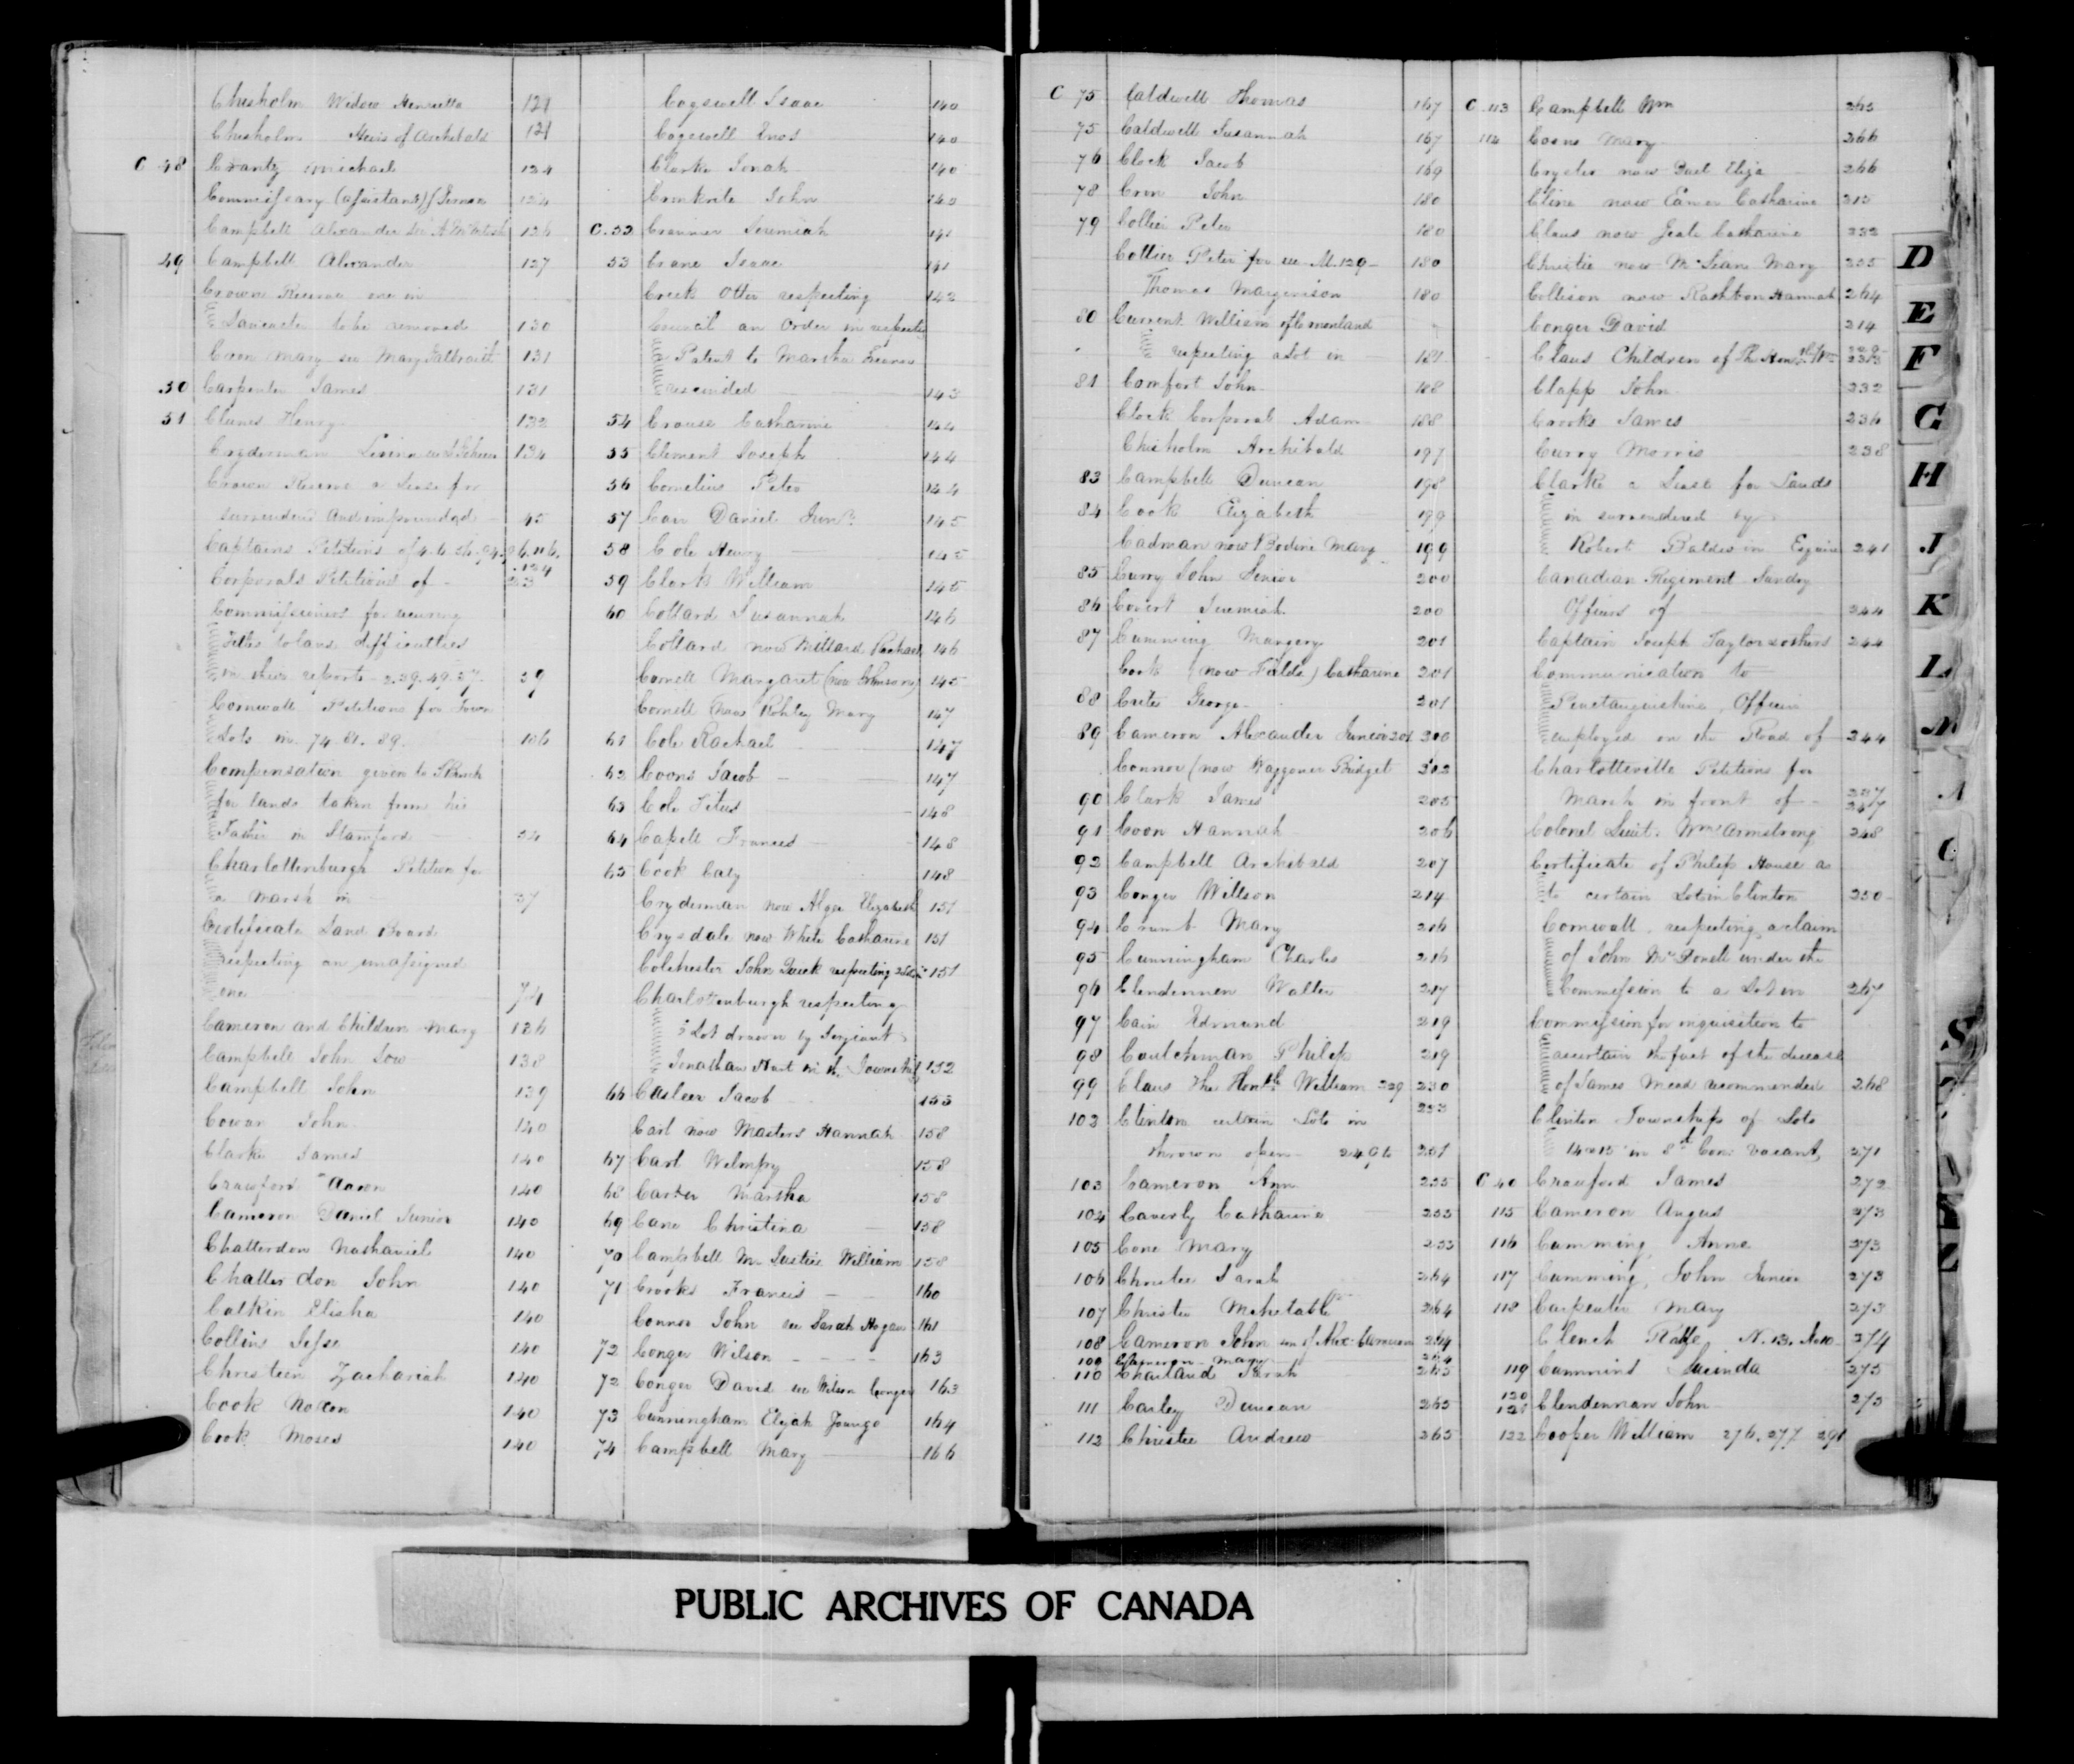 Chisholm Widow Henrietta 121
Chisholm Heirs of Archibald 121
C 48 Crantz Michael 124
Commissary (assistant) 124
Campbell Alexander see A McIntosh 126
49 Campbell Alexander 127
Crown Reserve one in
Lancaster to be removed 130
Coon Mary see Mary Galbraith 131
50 Carpenter James 131
51 Clunes Henry 132
Cryderman 134
Crown Reserve a Lease for
surrendered and impounded 45
Captains Petitions of 4. 6. 56. 94. 96. 116. 124
Corporals Petitions of 23
Commissioners for securing
Titles to lans difficulties
in their reports 2. 39. 49. 57. 59
Cornwall Petitions for Town
Lots in 74. 81. 89. 106
Compensation given to
for lands taken from his
Father in Stamford 34
Charlottenburgh Petition for
a marsh in 37
Certificate Land Board
respecting an unassigned
one 74
Cameron and Children Mary 136
Campbell John Low 138
Campbell John 139
Cowan John 140
Clarke James 140
Crawford Aaron 140
Cameron Daniel Junior 140
Chatterdon Nathaniel 140
Chatterdon John 140
Calkin Elisha 140
Collins Jesse 140
Christeen Zachariah 140
Cook Noxon 140
Cook Moses 140
Cogswell Isaac 140
Cogswell Enos 140
Clarke Jonah 140
Cronkrite John 140
C. 52 Cranmer Jeremiah 141
53 Crane Isaac 141
Creek Otter respecting 142
Council an Order in respecting
Patent to Marsha
rescinded 143
54 Crouse Catharine 144
55 Clement Joseph 144
56 Cornelius Peter 144
57 Carr Daniel Junr. 145
58 Cole Henry 145
59 Clark William 145
60 Collard Susannah 146
Collard now Millard Rachael 146
Cornell Margaret (now Johnson) 145
Cornell (now Rohley Mary 147
61 Cole Rachael 147
62 Coons Jacob 147
63 Cole Titus 148
64 Capell Frances 148
65 Cook Caty 148
Cryderman now Alger Elizabeth 151
Crysdale now White Catharine 151
Colchester John Quick respecting 151
Charlottenburgh respecting
a Lot drawn by Serjeant
Jonathan Hart in the Township 152
66 Casleer Jacob 153
Carl now Masters Hannah 158
67 Carl Wilmpy 158
68 Carter Martha 158
69 Cane Christina 158
70 Campbell Mr Justice William 158
71 Crooks Francis 160
Connor John see Sarah Hogan 161
72 Conger Wilson 163
72 Conger David see Wilson Conger 163
73 Cunningham Elijah Youngs 164
74 Campbell Mary 166
C 75 Caldwell Thomas 167
75 Caldwell Susannah 167
76 Clock Jacob 169
78 Cron John 180
79 Collier Peter 180
Collier Peter for see M. 129 180
Thomas Margerison 180
80 Current William of
respecting a Lot in 181
81 Comfort John 188
Clock Corporal Adam 188
Chisholm Archibald 197
83 Campbell Duncan 198
84 Cook Elizabeth 199
Cadman now Bodine Mary 199
85 Curry John Senior 200
86 Covert Jeremiah 200
87 Cumming Margery 201
Cook (now Fields) Catharine 201
88 Crites George 201
89 Cameron Alexander Junior 201 300
Connor (now Waggoner Bridget 302
90 Clark James 205
91 Coon Hannah 206
92 Campbell Archibald 207
93 Conger Willson 214
94 Crumb Mary 216
95 Cunningham Charles 216
96 Clendennen Walter 217
97 Cain Edmund 219
98 Coutchman Philip 219
99 Claus The Honble William 229 230
102 Clinton certain Lots in 233
thrown open 249 to 251
103 Cameron Ann 255
104 Caverly Catharine 255
105 Cone Mary 255
106 Christie Sarah 264
107 Christie Mehetable 264
108 Cameron John son of Alex Cameron 264
109 Cameron Mary 264
110 Chatland Sarah 265
111 Carley Duncan 265
112 Christie Andrew 265
C 113 Campbell Wm 265
114 Coons Mary 266
Crysler now Eliza 266
Cline now Eamer Catharine 215
Claus now Catharine 232
Christie now McLean Mary 255
Collison now Rathbon Hannah 264
Conger David 214
Claus Children of The Honble Wm 229 233
Clapp John 232
Crooks James 236
Curry Morris 238
Clarke a Lease for Lands
in surrendered by
Robert Baldwin Esquire 241
Canadian Regiment Sundry
Officers of 244
Captain Joseph Taylor & others 244
Communication to
Penetanguishine, Officers
employed on the Road of 244
Charlotteville Petitions for
Marsh in front of 237 247
Colonel Lieut. Wm Armstrong 248
Certificate of Philip House as
to certain Lots in Clinton 250
Cornwall respecting a claim
of John McDonell under the
Commission to a Lot in 267
Commission for inquisition to
ascertain the fact of the decease
of James Mead recommended 268
Clinton Township of Lots
14 & 15 in 8th Con: vacant, 271
C 40 Crawford James 272
115 Cameron Angus 273
116 Cumming, Anne 273
117 Cumming, John Junior 273
118 Carpenter Mary 273
Clench Ralfe, N. 13. 274
119 Cummins Lucinda 275
120 121 Clendennan John 275
122 Cooper William 276. 277 291
D
E
F
G
H
J
K
L
PUBLIC ARCHIVES OF CANADA